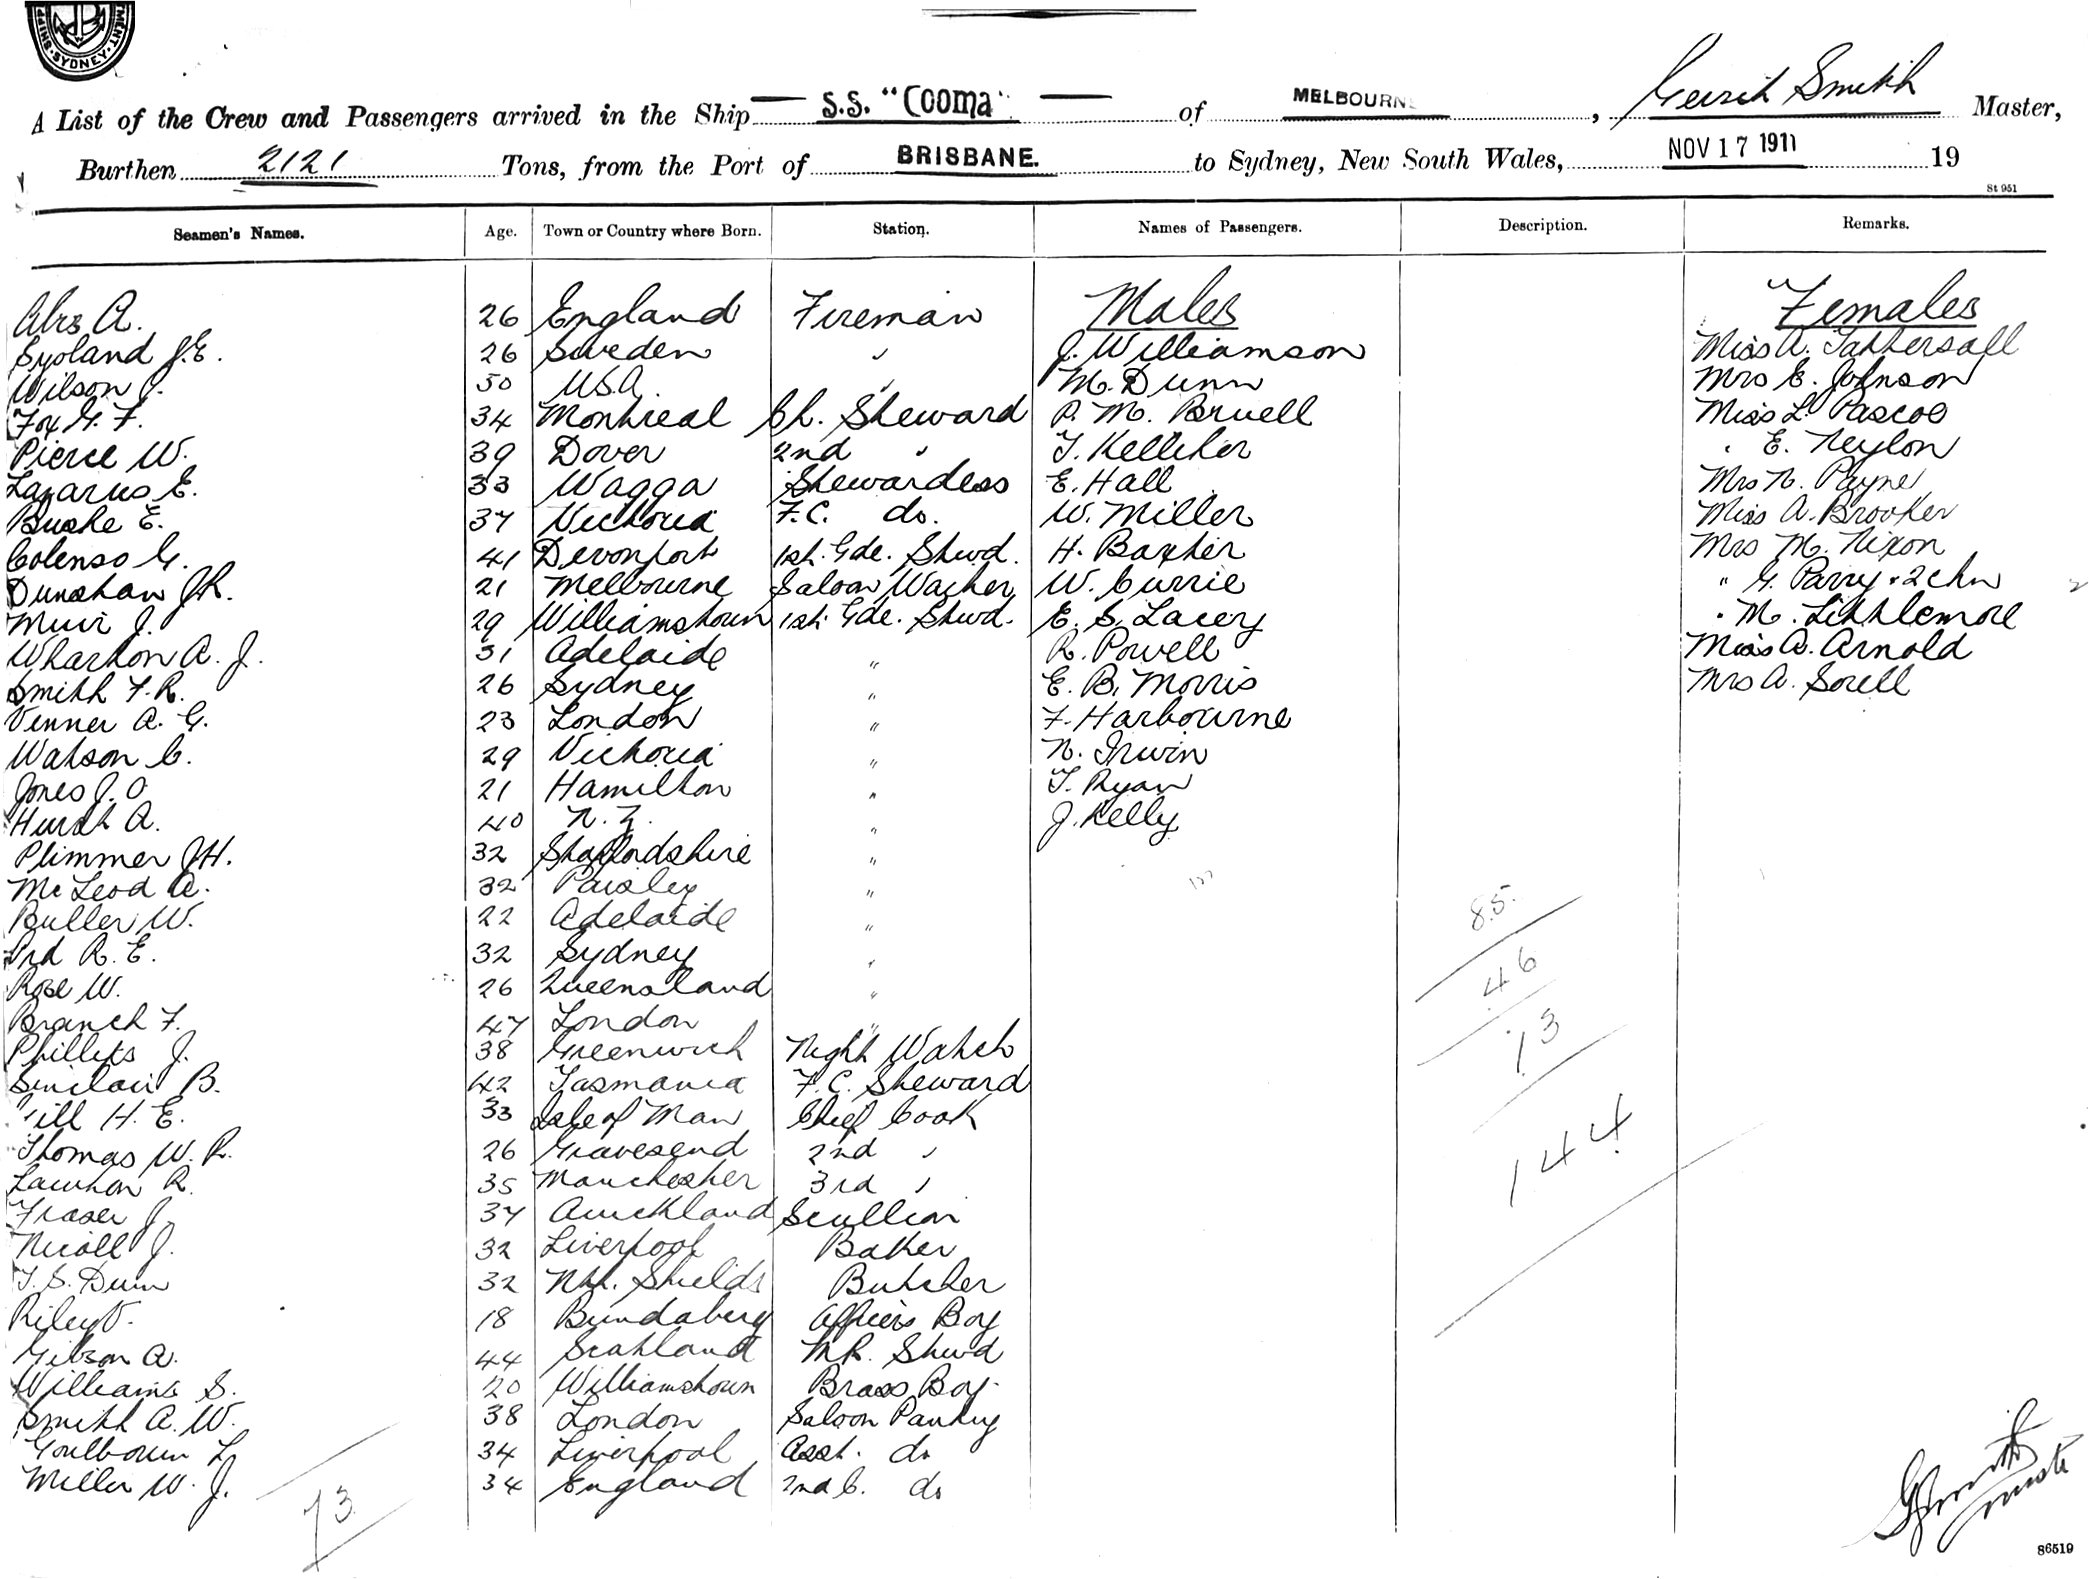 SHIP MENT SYDNEY
A List of the Crew and Passengers arrived in the Ship S.S. "Cooma" of MELBOURNE, Gerrit Smith Master,
Burthen 2121 Tons, from the Port of BRISBANE. to Sydney, New South Wales, NOV 17 1911 19
St 951
Seamen's Names. Age. Town or Country where Born. Station. Names of Passengers. Description. Remarks.
A. 26 England Fireman Males Females
Syoland J.E. 26 Sweden " J. Williamson Miss A. Tattersall
Wilson J. 50 U.S.A. " M. Dunn Mrs E. Johnson
Fox G. F. 34 Montreal Ch. Steward P. M. Bruell Miss L. Pascoe
Pierce W. 39 Dover 2nd " T. Kelliher " E. Neylon
Lazarus E. 33 Wagga Stewardess E. Hall Mrs N. Payne
Buske E. 37 Victoria F.C. do. W. Miller Miss A. Brooker
Colenso G. 41 Devonport 1st. Gde. Stwd. H. Baxter Mrs M. Nixon
Dunstan J.R. 21 Melbourne Saloon Waiter W. Currie " G. Parry + 2 chn
Muir J. 29 Williamstown 1st. Gde. Stwd. E. S. Lacey " M. Littlemore
Wharton A. J. 31 Adelaide " R. Powell Miss A. Arnold
Smith F. R. 26 Sydney " E. B. Morris Mrs A. Sorell
Venner A. G. 23 London " F. Harbourne
Watson C. 29 Victoria " N. Irwin
Jones J. O. 21 Hamilton " T. Ryan
Hurst A. 40 N. Z. " J. Kelly
Plimmer J.H. 32 Staffordshire "
McLeod A. 32 Paisley "
Buller W. 22 Adelaide " 85.
Ord R. E. 32 Sydney "
Rose W. 26 Queensland " 46
Branch F. 47 London "
Phillips J. 38 Greenwich Night Watch 13
Sinclair B. 42 Tasmania F.C. Steward
Till H. E. 33 Isle of Man Chief Cook
Thomas W. R. 26 Gravesend 2nd " 144
Lawton R. 35 Manchester 3rd "
Fraser J. 37 Auckland Scullion
Nicoll J. 32 Liverpool Baker
T. S. Dunn 32 Nth. Shields Butcher
Riley V. 18 Bundaberg Officers Boy
Gibson A. 44 Scotland M.R. Stwd
Williams S. 20 Williamstown Brass Boy
Smith A. W. 38 London Saloon Pantry
Goulbourn L 34 Liverpool Asst. do
Miller W. J. 34 England 2nd C. do
73
G Smith
86519